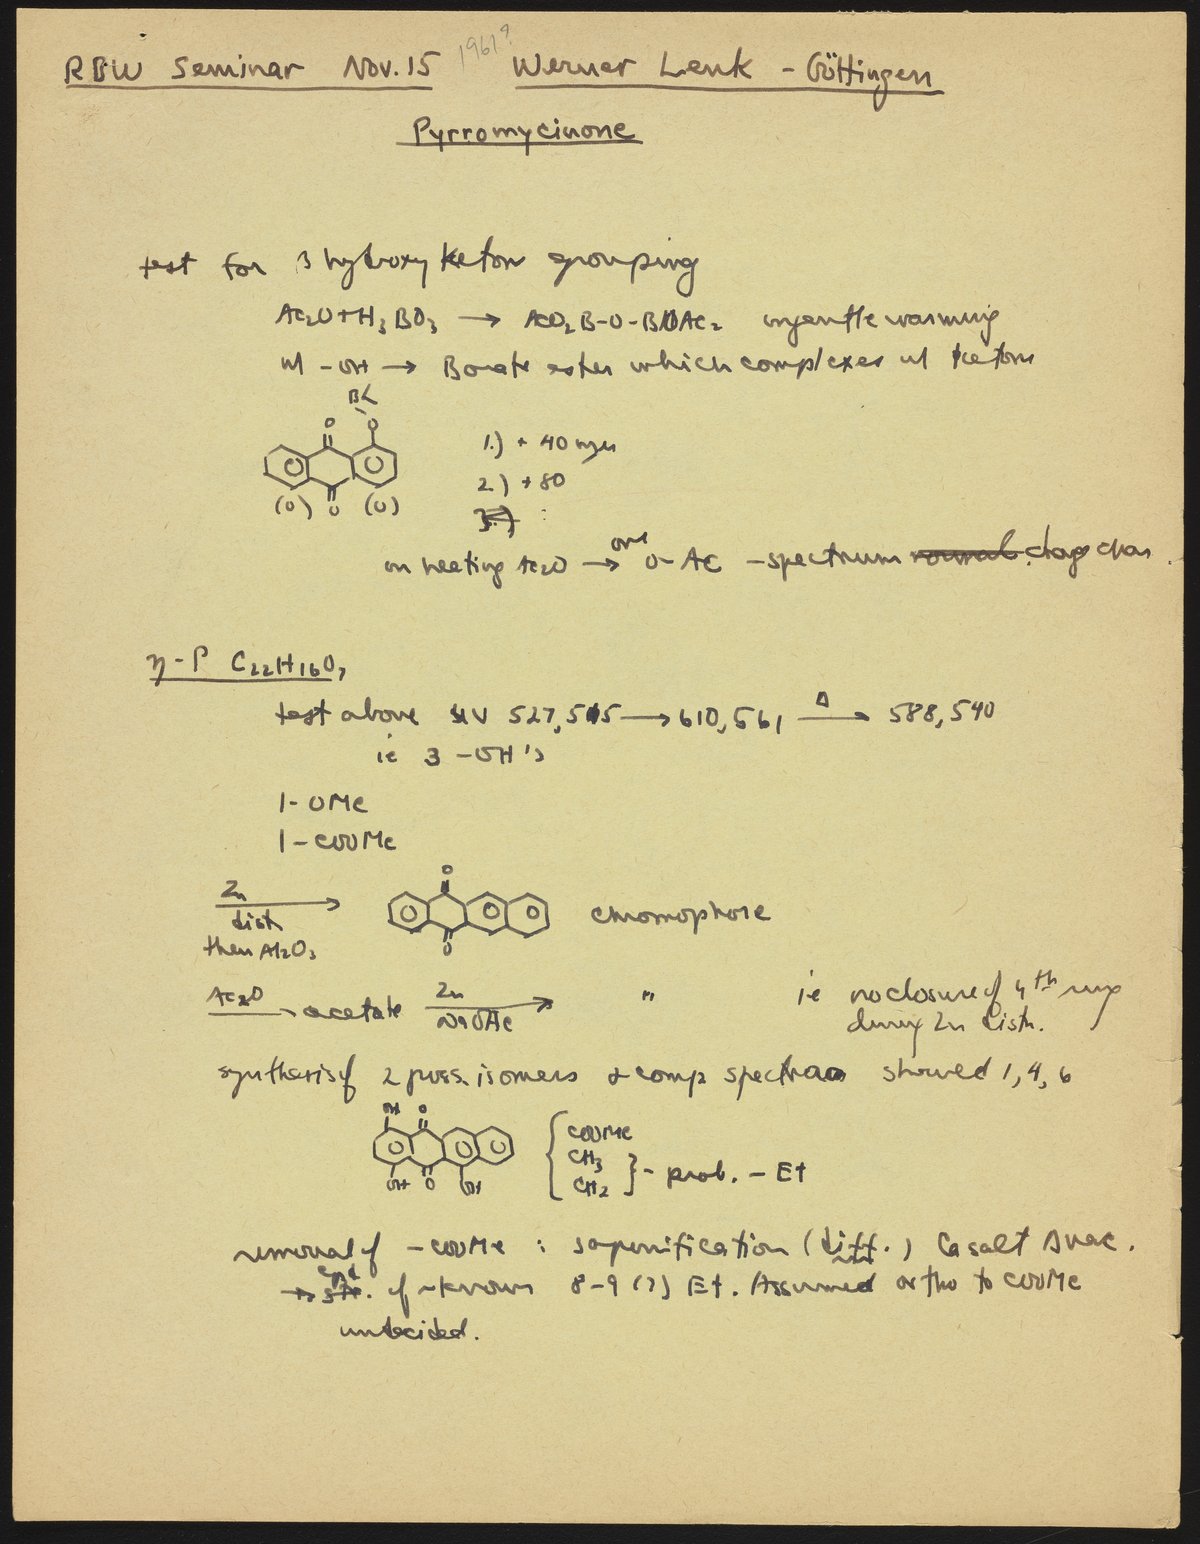 RBW Seminar Nov. 15 1961? Werner Lenk - Göttingen
Pyrromycinone
test for β hydroxy keton grouping
Ac₂O + H₃BO₃ → AcO₂B-O-BOAc₂ on gentle warming
w/ -OH → Borate ester which complexes w/ keton
B<
O O
1.) + 40 mμ
2.) + 80
(O) O (O)
3.)
on heating Ac₂O → one O-Ac - spectrum normal chags
η-P C₂₂H₁₆O₇
test above UV 527, 515 → 610, 561 Δ→ 588, 540
ie 3 -OH's
1- OMe
1- COOMe
Zn
dist
then Al₂O₃
O
O
chromophore
Ac₂O → acetate Zn NaOAc → " ie no closure of 4th ring
during Zn distn.
synthesis of 2 poss. isomers & comp spectra showed 1, 4, 6
OH O
OH O OH
COOMe
CH₃
CH₂ } - prob. - Et
removal of -COOMe : saponification (diff.) Ca salt
→ cpd. of known 8-9 (?) Et. Assumed ortho to COOMe
undecided.